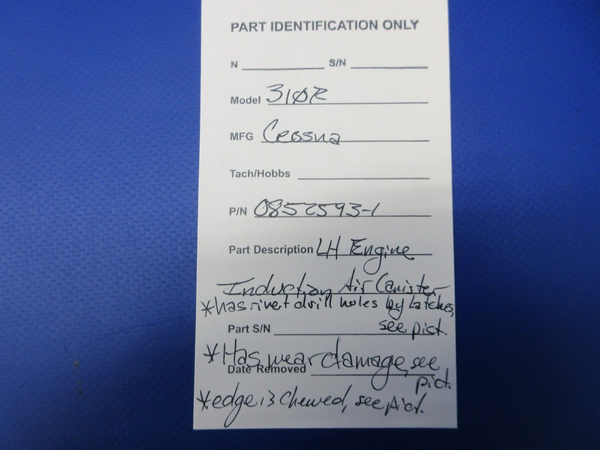 PART IDENTIFICATION ONLY
N S/N
Model 310R
MFG Cessna
Tach/Hobbs
P/N 0852593-1
Part Description LH Engine
Induction Air Canister
*has rivet drill holes by latches,
Part S/N see pict.
*Has wear damage, see
Date Removed pict.
*edge is chewed, see pict.